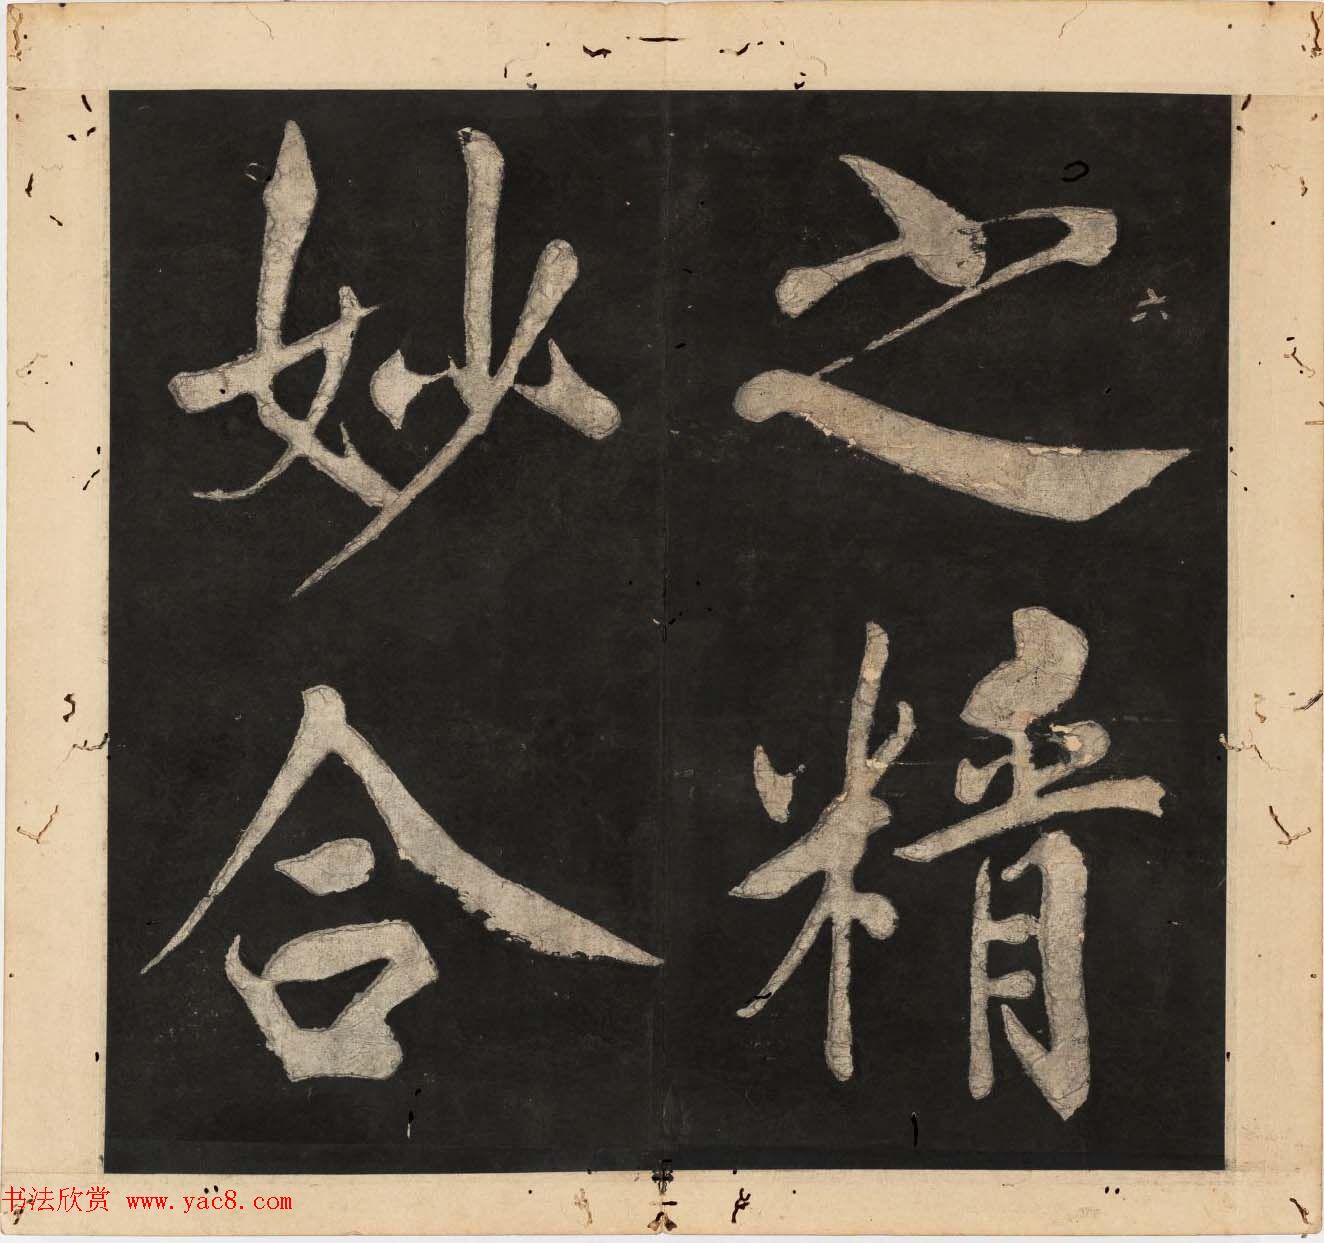 之精
六
妙合
书法欣赏 www.yac8.com